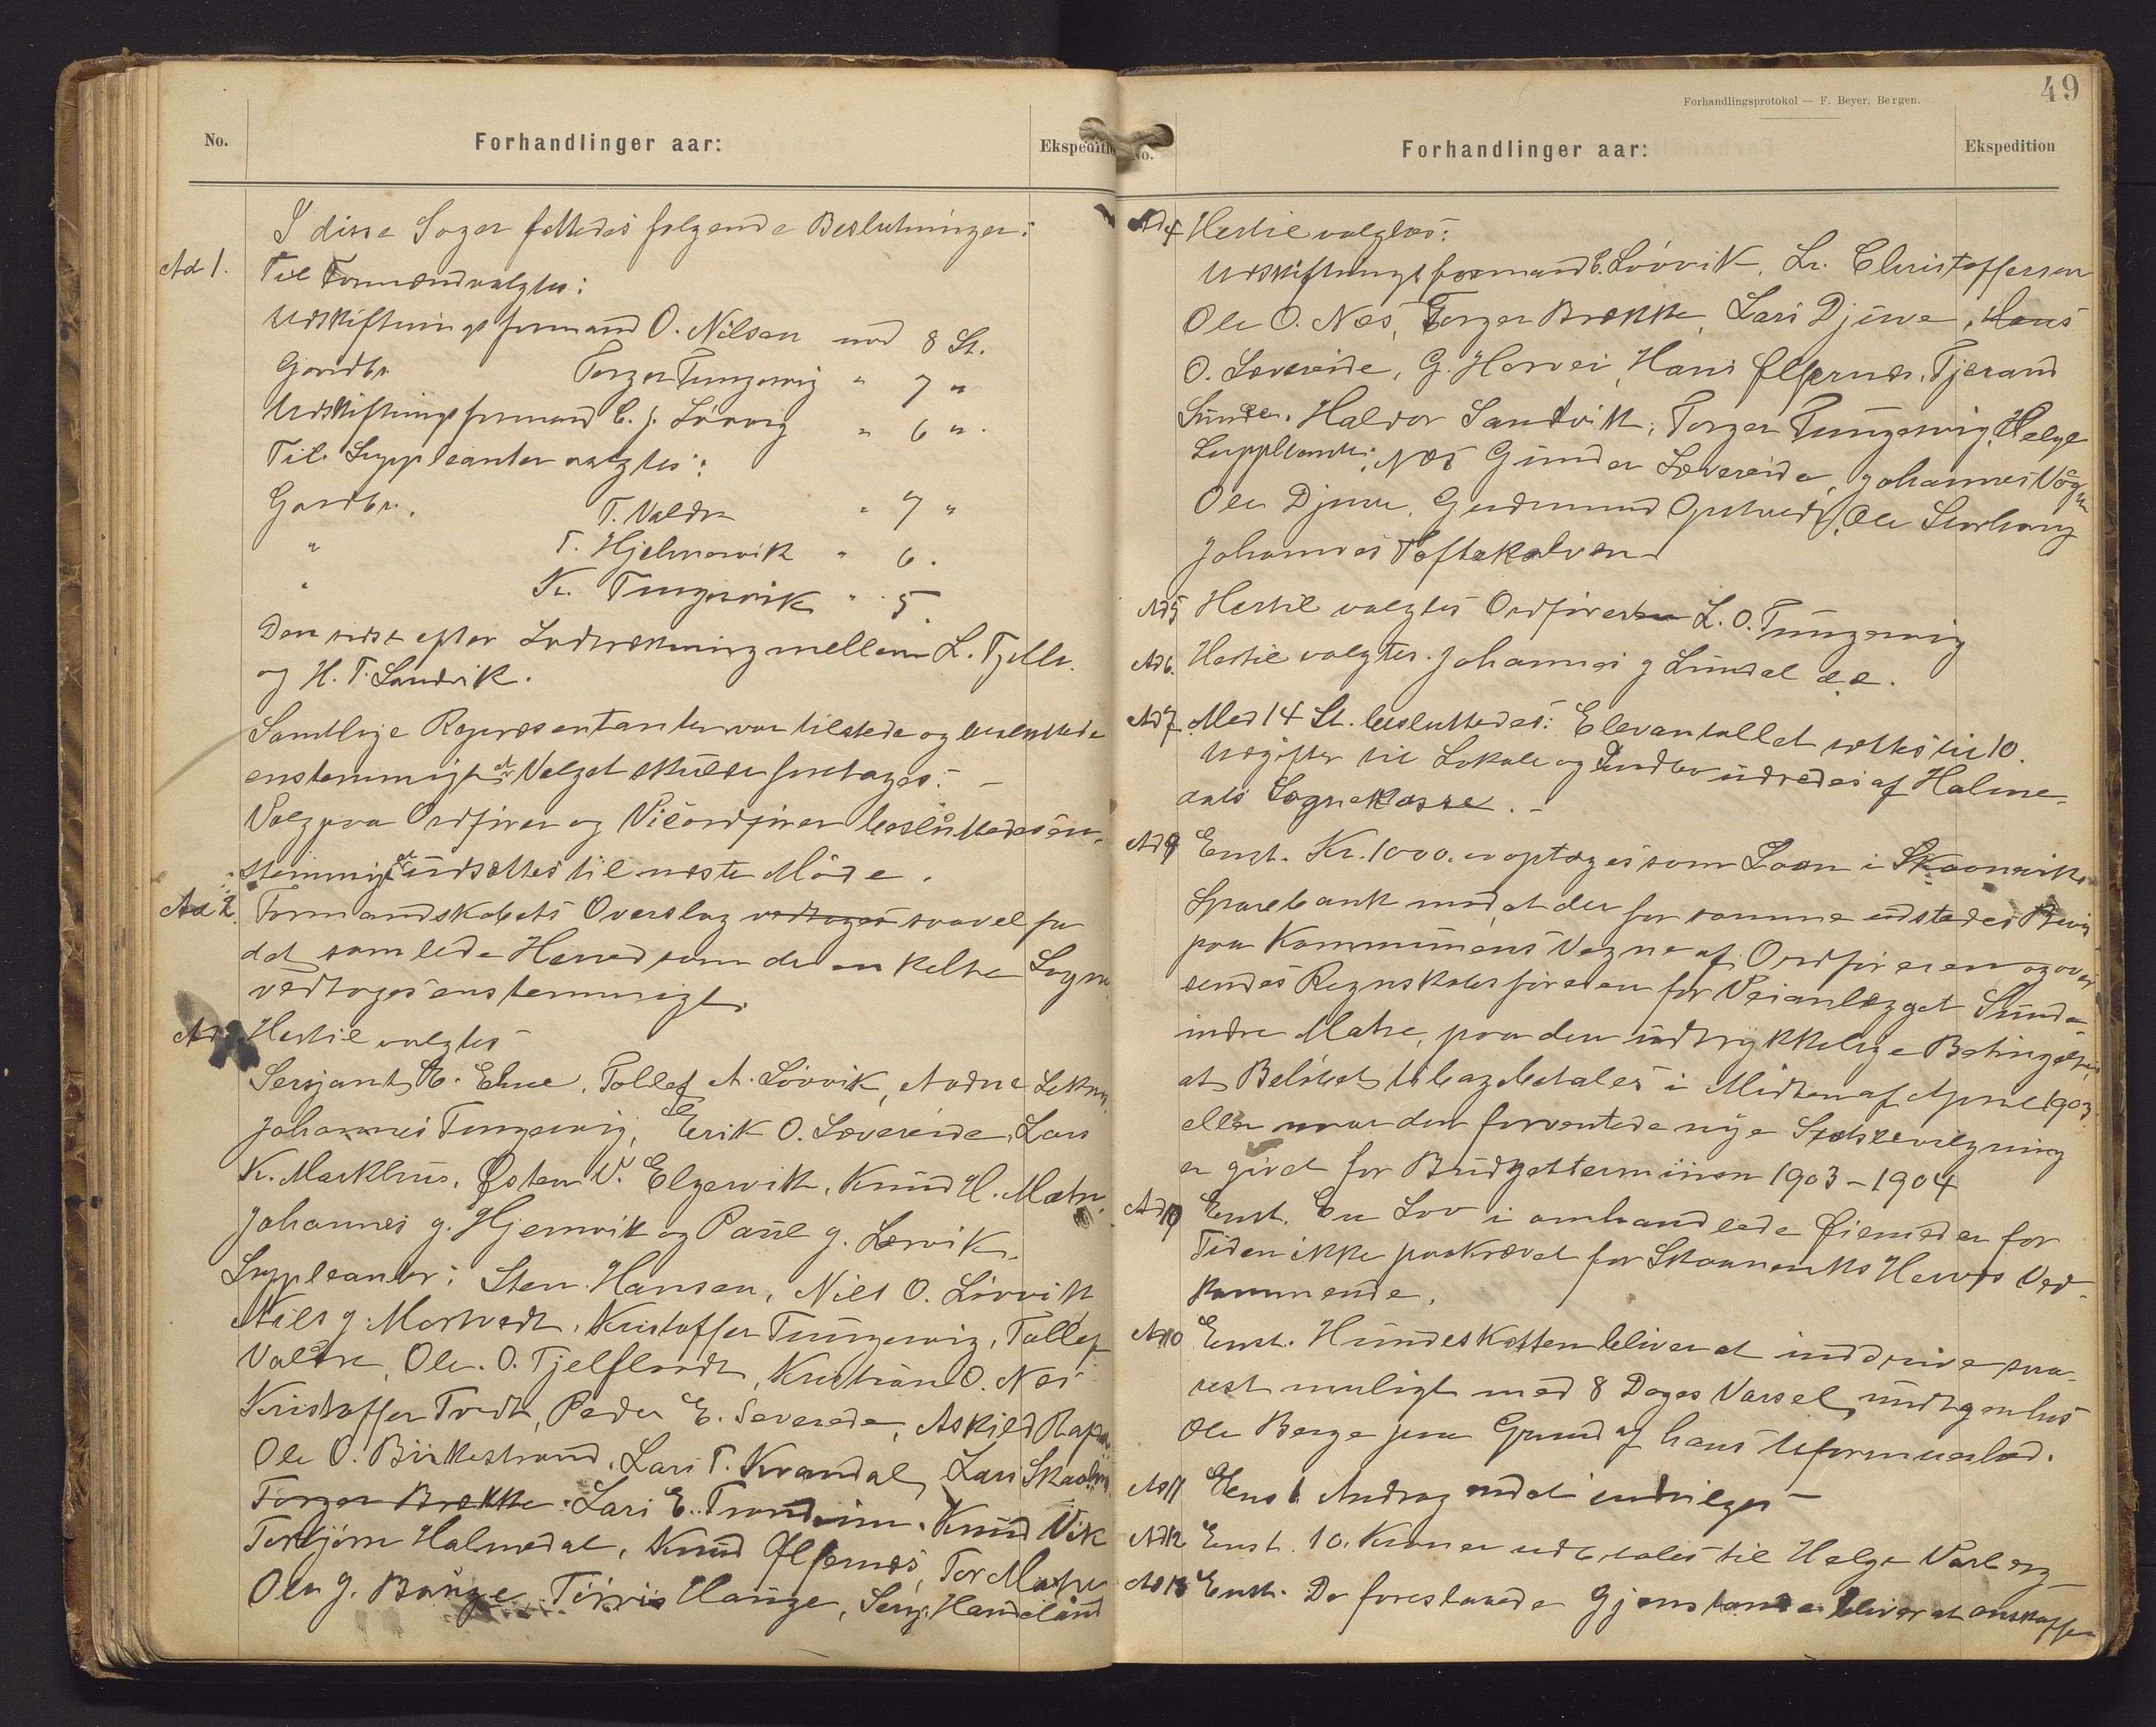 No.
Forhandlinger aar:
Ekspeditio
I disse Sager fattedes følgende Beslutninger:
Ad 1. Til Formænd valgtes:
Udskiftningsformand O. Nilsen med 8 St.
Gardbr. Torger Tungesvig " 7 "
Udskiftningsformand C. J. Løvvig " 6 "
Til Suppleanter valgtes:
Gardbr. T. Valdre " 7 "
" T. Hjelmevik " 6.
" Kr. Tungesvik " 5
Den sidste efter Lodtrækning mellem L. Fjelle.
og H. T. Sandvik.
Samtlige Repræsentanter var tilstede og besluttede
enstemmigt at Valget skulde foretages. –
Valg paa Ordfører og Viceordfører besluttedes en-
stemmigt at udsættes til næste Møde.
Ad 2. Formandskabets Overslag vedtoges saavel for
det samlede Herred som de enkelte Sogne
vedtoges enstemmigt.
Ad 3. Hertil valgtes
Serjant E. Ebne, Tollef A. Løvvik, Aadne Lekne,
Johannes Tungesvig, Erik O. Sævereide, Lars
K. Markhus, Østen V. Elgervik, Knud H. Matre,
Johannes J. Hjemvik og Paul J. Lærvik.
Suppleanter: Sten Hansen, Niels O. Løvvik
Niels J. Mortvedt, Kristoffer Tungesvig, Tollef
Valdre, Ole O. Fjelflaadt, Kristian O. Næs
Kristoffer Tvedt, Peder E. Severeide, Askild
Ole O. Birkestrand, Lars T. Kvandal, Lars
Torger Brekke. Lars E. Trondsim. Knud Vik
Torbjørn Halmedal, Knud Ølfernes, Tor Matre
Ole J. Bauge Tørris Hauge, Serg. Handeland
49
Forhandlingsprotokol — F. Beyer, Bergen.
No.
Forhandlinger aar:
Ekspedition
Ad 4 Hertil valgtes:
Udskiftningsformand C. Løvvik, Kr. Christoffersen
Ole O. Næs, Torger Brekke, Lars Djuve, Hans
O. Sævereide, G. Harvei, Hans Ølfernes, Tjerand
Sunde, Haldor Sandvik, Torger Tungesvig, Helge
Suppleanter: Næs Gunder Sævereide, Johannes Vågen
Ole Djuve, Gudmund Opstvedt, Ole Storhaug
Johannes Toftekalven
Ad 5 Hertil valgtes Ordføreren L. O. Tungesvig
Ad 6. Hertil valgtes. Johannes J Lundal d.e.
Ad 7 Med 14 St. besluttedes: Elevantallet sættes til 10.
Udgifter til Lokale og udredes af Halme-
dals Sognekasse. –
Ad 8 Enst. Kr. 1000. optages som Laan i Skaanviks
Sparebank mod, at der for samme udstedes Bevis
paa Kommunens Vegne af Ordføreren og over-
sendes Regnskabsføreren for Veianlægget Sunde-
indre Matre, paa den udtrykkelige Betingelse,
at Beløbet tilbagebetales i Midten af April 1903
eller naar den forventede nye Statsbevilgning
er givet for Budgetterminen 1903 – 1904
Ad 9 Enst. En Lov i omhandlede Øiemed er for
Tiden ikke paakrævet for Skaaneviks Herreds Ved-
kommende.
Ad 10 Enst. Hundeskatten bliver at inddrive snar-
est muligt med 8 Dages Varsel, undtagen hos
Ole Berge paa Grund af hans Uformuenhed.
Ad 11 Enst. Andragendet indvilges –
Ad 12 Enst. 10. Kroner udbetales til Helge Varberg –
Ad 13 Enst. De foreslaaede Gjenstande bliver at anskaffe